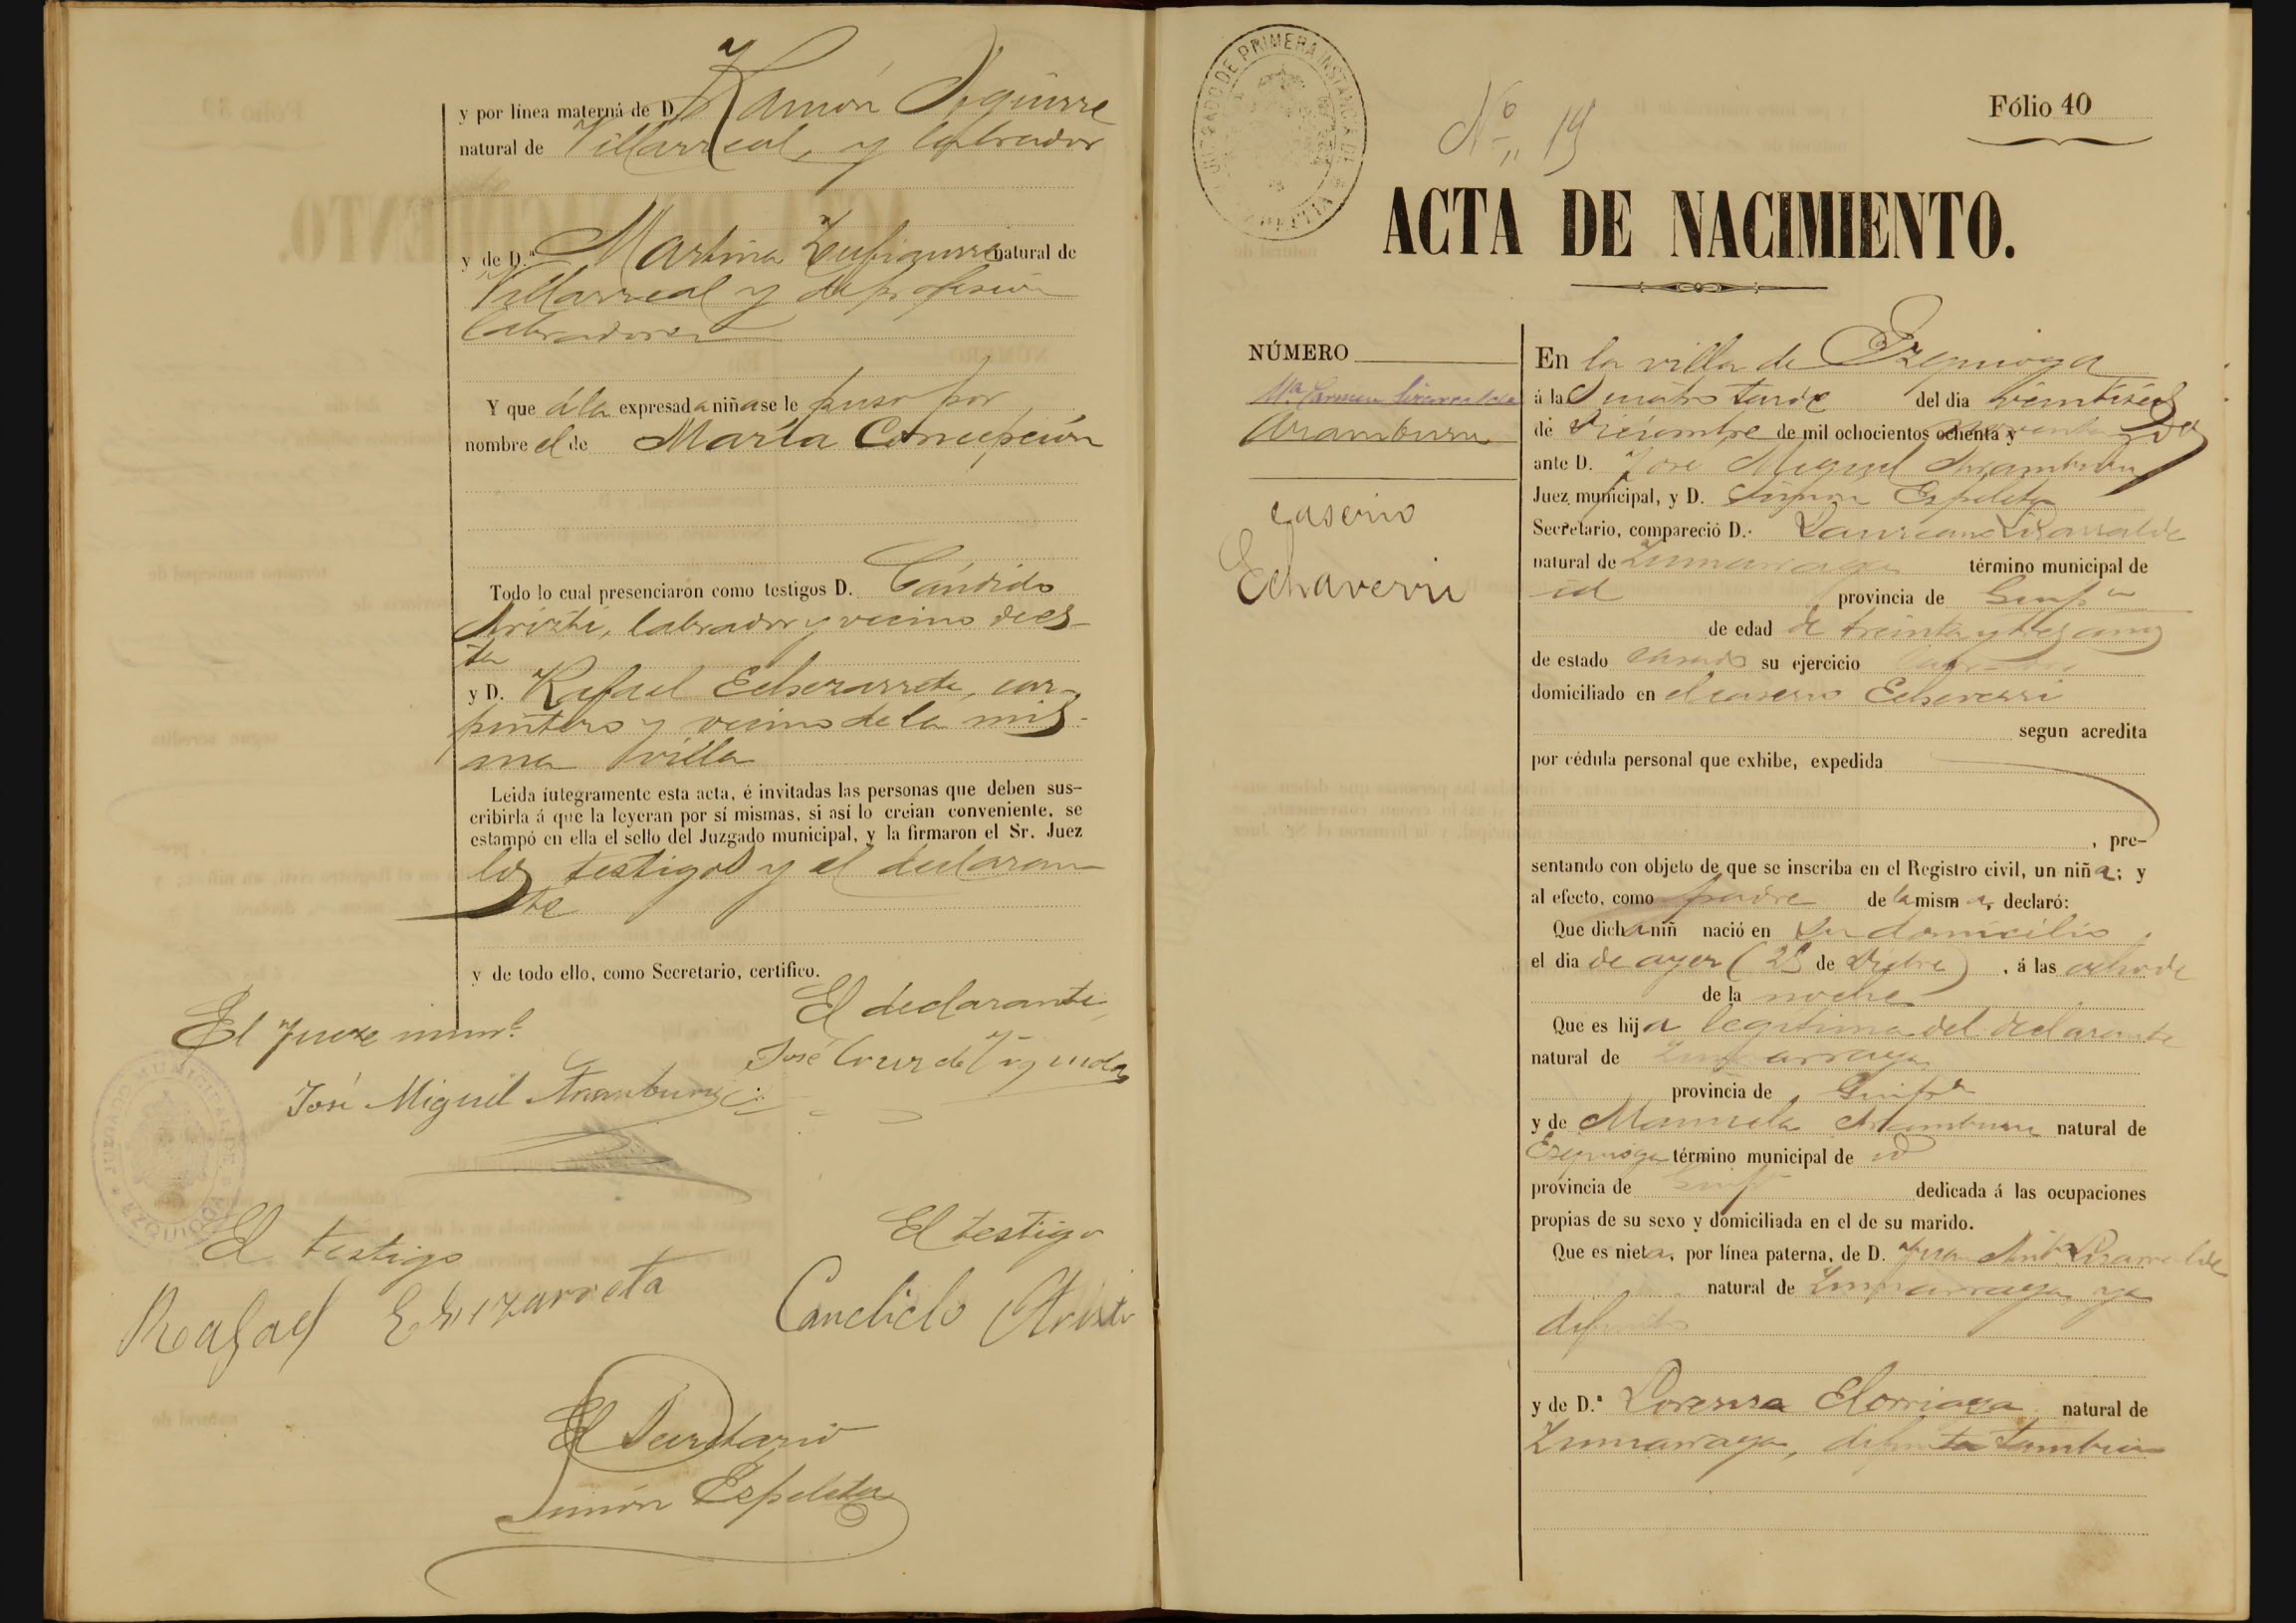 y por línea materna de D. Ramón Aguirre
natural de Villarreal, y labrador
y de D.ª Martina Zufiaurre natural de
Villarreal y de profesión
labradora
Y que á la expresada niña se le puso por
nombre el de María Concepción
Todo lo cual presenciaron como testigos D. Cándido
Aristi, labrador y vecino de es-
ta
y D. Rafael Echezarreta, car-
pintero y vecino de la mis-
ma villa
Leida íntegramente esta acta, é invitadas las personas que deben sus-
cribirla á que la leyeran por sí mismas, si así lo creian conveniente, se
estampó en ella el sello del Juzgado municipal, y la firmaron el Sr. Juez
los testigos y el declaran
te
y de todo ello, como Secretario, certifico.
El declarante,
El Juez mun.l
José Cruz de
José Miguel Aramburu
JUZGADO MUNICIPAL DE EZQUIOGA
El testigo
El testigo
Rafael Echezarreta
Candido Aristi
El Secretario
Simón Espeleta
JUZGADO DE PRIMERA INSTANCIA DE AZPEITIA
Nº 19
Fólio 40
ACTA DE NACIMIENTO.
NÚMERO
Mª Carmen Lizarralde
Aramburu
Caserio
Echaverri
En la villa de Ezquioga
á las cuatro tarde del dia veintiseis
de Diciembre de mil ochocientos ochenta y noventa y dos
ante D. José Miguel Aramburu
Juez municipal, y D. Simón Espeleta
Secretario, compareció D. Laureano Lizarralde
natural de Zumarraga término municipal de
id provincia de Guip.a
de edad de treinta y tres años
de estado casado su ejercicio labrador
domiciliado en el caserio Echeverri
segun acredita
por cédula personal que exhibe, expedida
, pre-
sentando con objeto de que se inscriba en el Registro civil, un niña; y
al efecto, como padre de la misma, declaró:
Que dicha niñ nació en su domicilio
el dia de ayer (25 de Dbre) , á las ocho de
de la noche
Que es hija legitima del declarante
natural de Zumarraga
provincia de Guip.a
y de Manuela Aramburu natural de
Ezquioga término municipal de id
provincia de Guip.a dedicada á las ocupaciones
propias de su sexo y domiciliada en el de su marido.
Que es nieta, por línea paterna, de D. Juan Ant.o Lizarralde
natural de Zumarraga ya
difunto
y de D.ª Lorenza Elorriaga natural de
Zumarraga, difunta tambien